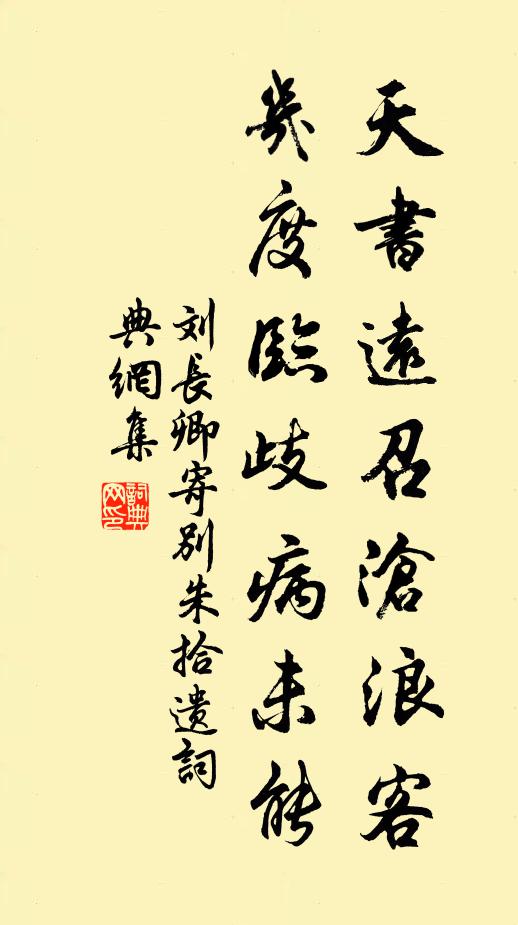 天書遠召滄浪客
幾度臨歧病未能
刘長卿寄别朱拾遗詞
典網集
詞典
网印